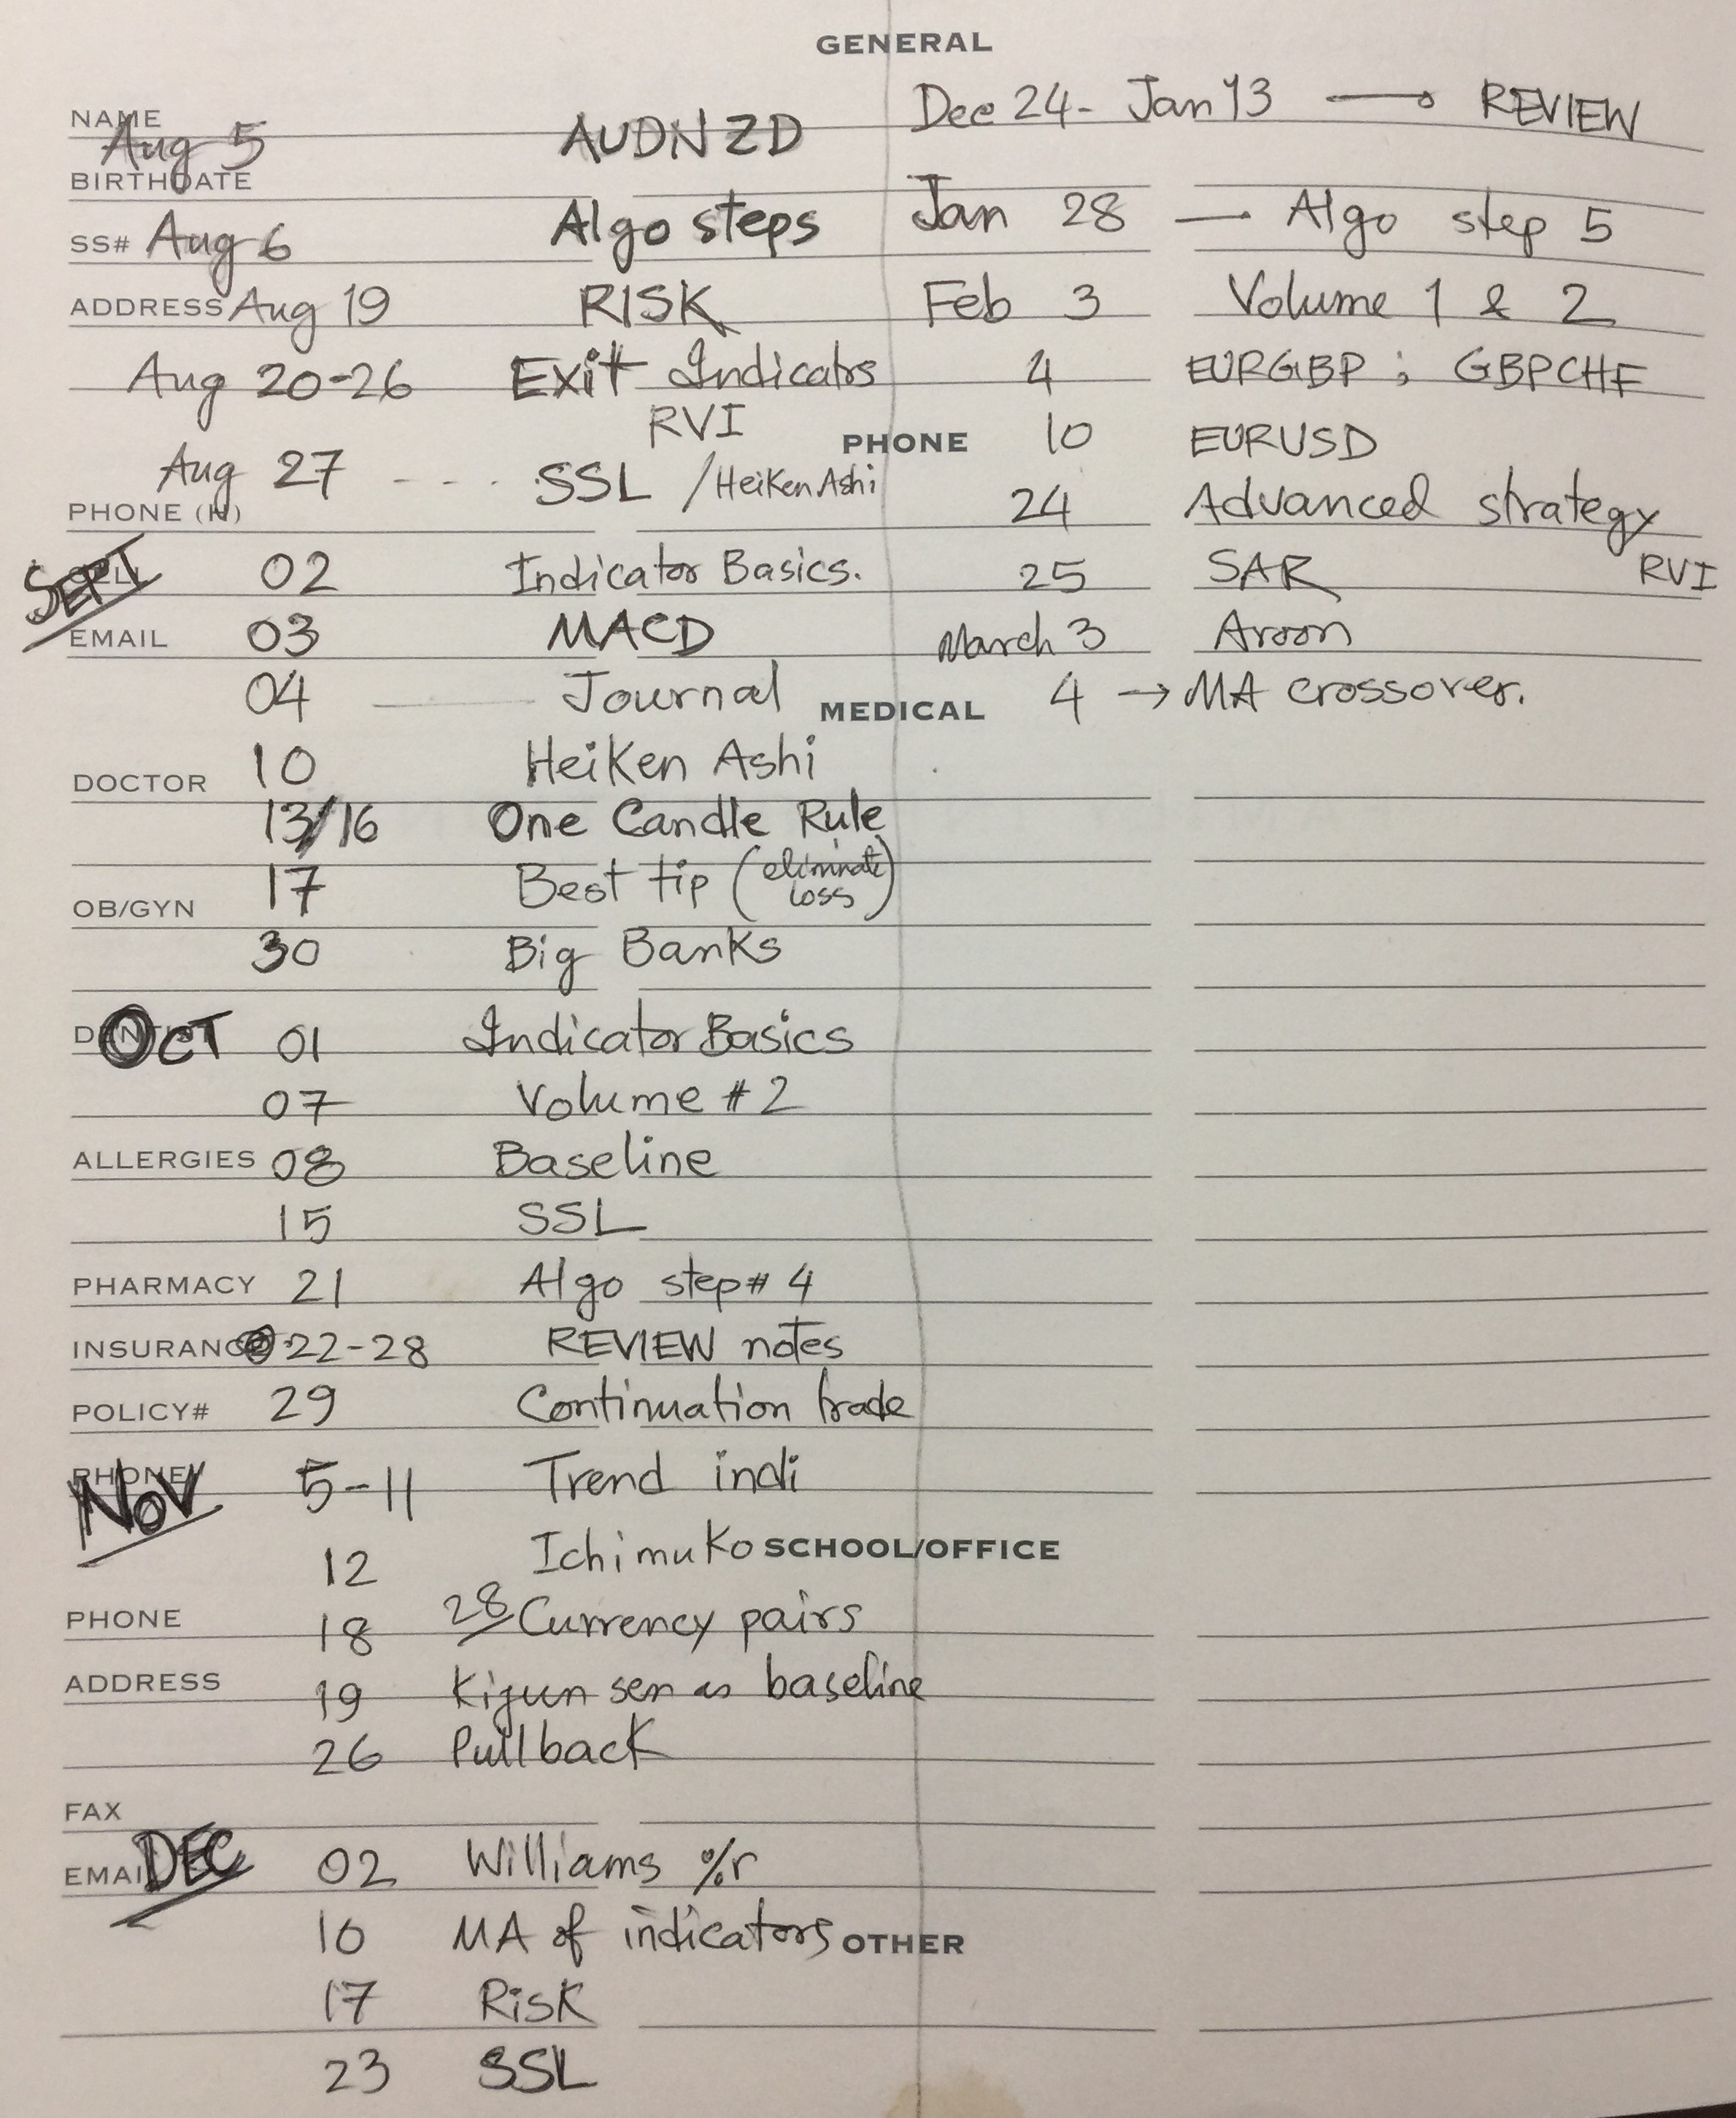 GENERAL
NAME
Aug 5 AUDNZD
BIRTHDATE
SS# Aug 6 Algo steps
ADDRESS Aug 19 RISK
Aug 20-26 Exit Indicatrs
RVI
Aug 27 - - - . SSL / HeiKen Ashi
PHONE (H)
SEPT 02 Indicator Basics.
EMAIL 03 MACD
04 — Journal
10 HeiKen Ashi
DOCTOR
13/16 One Candle Rule
17 Best tip (eliminate loss)
OB/GYN
30 Big Banks
OCT 01 Indicator Basics
07 Volume #2
ALLERGIES 08 Baseline
15 SSL
PHARMACY 21 Algo step# 4
INSURANCE 22-28 REVIEW notes
POLICY# 29 Continuation trade
PHONE
NOV 5-11 Trend indi
12 Ichimuko
SCHOOL/OFFICE
PHONE 18 28 Currency pairs
ADDRESS 19 Kijun sen as baseline
26 Pull back
FAX
EMAIL DEC 02 Williams %r
10 MA of indicators
OTHER
17 Risk
23 SSL
Dec 24- Jan 13 → REVIEW
Jan 28 — Algo step 5
Feb 3 Volume 1 & 2
4 EURGBP ; GBPCHF
PHONE 10 EURUSD
24 Advanced strategy
25 SAR RVI
March 3 Aroon
MEDICAL 4 → MA crossover.